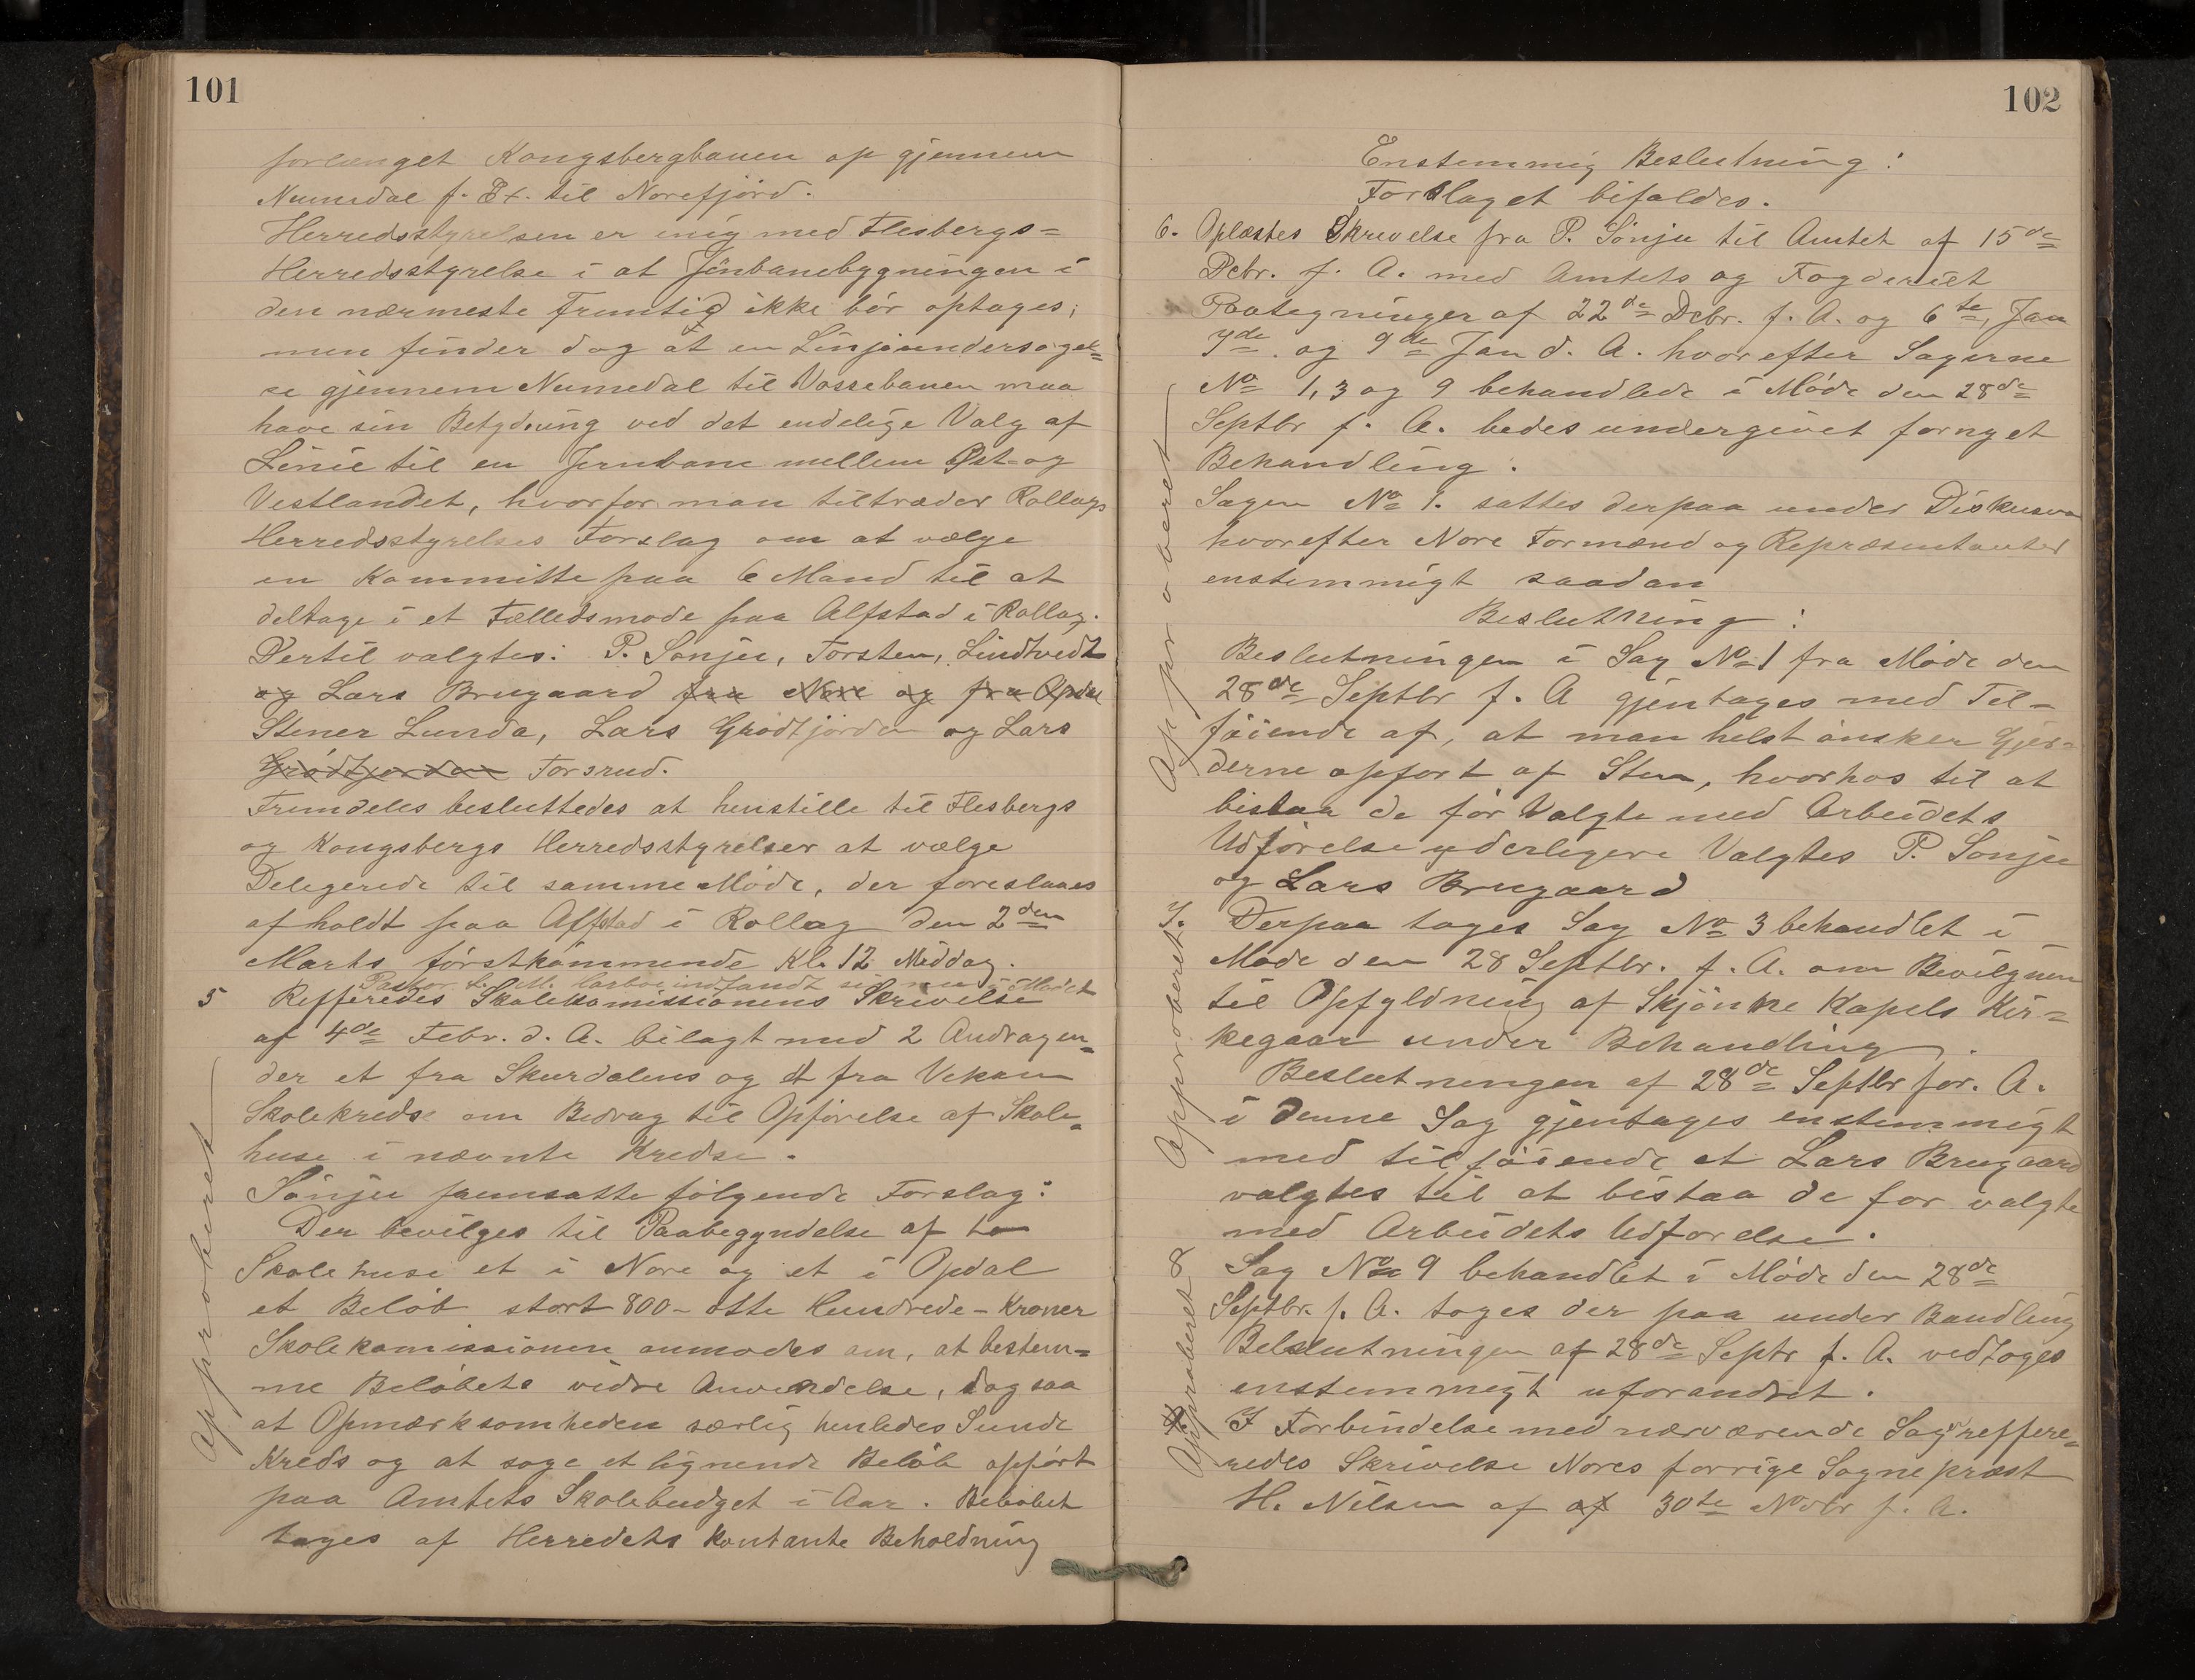 101
forlænget Kongsbergbanen op gjennem
Numedal f. Ex. til Norefjord.
Herredsstyrelsen er enig med Flesbergs=
Herredsstyrelse i at Jernbanebygningen i
den nærmeste Fremtid ikke bør optages;
men finder dog at en Linjeundersøgel=
se gjennem Numedal til Vossebanen maa
have sin Betydning ved det endelige Valg af
Linie til en Jernbane mellem Øst- og
Vestlandet, hvorfor man tiltræder Rollags
Herredsstyrelses Forslag om at vælge
en Kommitte paa 6 Mand til at
deltage i et Fælledsmøde paa Alfstad i Rollag.
Dertil valgtes: P. Sønju, Torsten, Lindtvedt
og Lars Brugaard fra Nore og fra Opdal
Stener Lunda, Lars Grødtjorden og Lars
Grødtjorden Torsrud.
Fremdeles besluttedes at henstille til Flesbergs
og Kongsbergs Herredsstyrelser at vælge
Delegerede til samme Møde, der foreslaaes
afholdt paa Alfstad i Rollag den 2den
Marts førstkommende Kl. 12 Middag.
Pastor indfandt sig nu i Mødet
5 Refferedes Skolekomissionens Skrivelse
af 4de Febr. d. A. bilagt med 2 Andragen=
der et fra Skurdalens og et fra Vekam
Skolekreds om Bedrag til Opførelse af Skole=
huse i nævnte Kredse.
Sønju fremsatte følgende Forslag:
Der bevilges til Paabegyndelse af to
Skolehuse et i Nore og et i Opdal
et Beløb stort 800 - otte Hundrede - Kroner
Skolekomissionen anmodes om, at bestem=
me Beløbets vidre Anvendelse, dog saa
at Opmærksomheden særlig henledes Sunde
Kreds og at søge et lignende Beløb opført
paa Amtets Skolebudget i Aar. Beløbet
tages af Herredets kontante Beholdning
Approberet
102
Enstemmig Beslutning:
Forslaget bifaldes.
6. Oplæstes Skrivelse fra P. Sønju til Amtet af 15de
Debr. f. A. med Amtets og Fogderiet
Paategninger af 22de Debr. f. A. og 6te, Jan
7de og 9de Jan d. A. hvorefter Sagerne
No 1, 3 og 9 behandlede i Møde den 28de
Septbr f. A. bedes undergivet fornyet
Behandling.
Sagen No 1. sattes derpaa under Diskusion
hvorefter Nore Formænd og Repræsentanter
enstemmigt saadan
Beslutning:
Beslutningen i Sag No 1 fra Møde den
28de Septbr f. A gjentages med Til-
føiende af, at man helst ønsker Gjer=
derne opført af Sten, hvorhos til at
bistaa de før Valgte med Arbeidets
Udførelse yderligere Valgtes P. Sonju
og Lars Brugaard
Approberet
7. Derpaa toges Sag No 3 behandlet i
Møde den 28 Septbr. f. A. om Bevilgnin
til Opfyldning af Skjønne Kapels Kir=
kegaar under Behandling.
Beslutningen af 28de Septbr for. A.
i denne Sag gjentages enstemmigt
med tilføiende at Lars Brugaard
valgtes til at bistaa de før valgte
med Arbeidets Udførelse.
Approberet
8 Sag No 9 behandlet i Møde den 28de
Septbr. f. A. toges der paa under Bandling
Belslutningen af 28de Septr f. A. vedtoges
enstemmigt uforandret.
I Forbindelse med nærværende Sag reffere=
redes Skrivelse Nores forrige Sogneprest
H. Nilsen af af 30te Novbr f. A.
Approberet